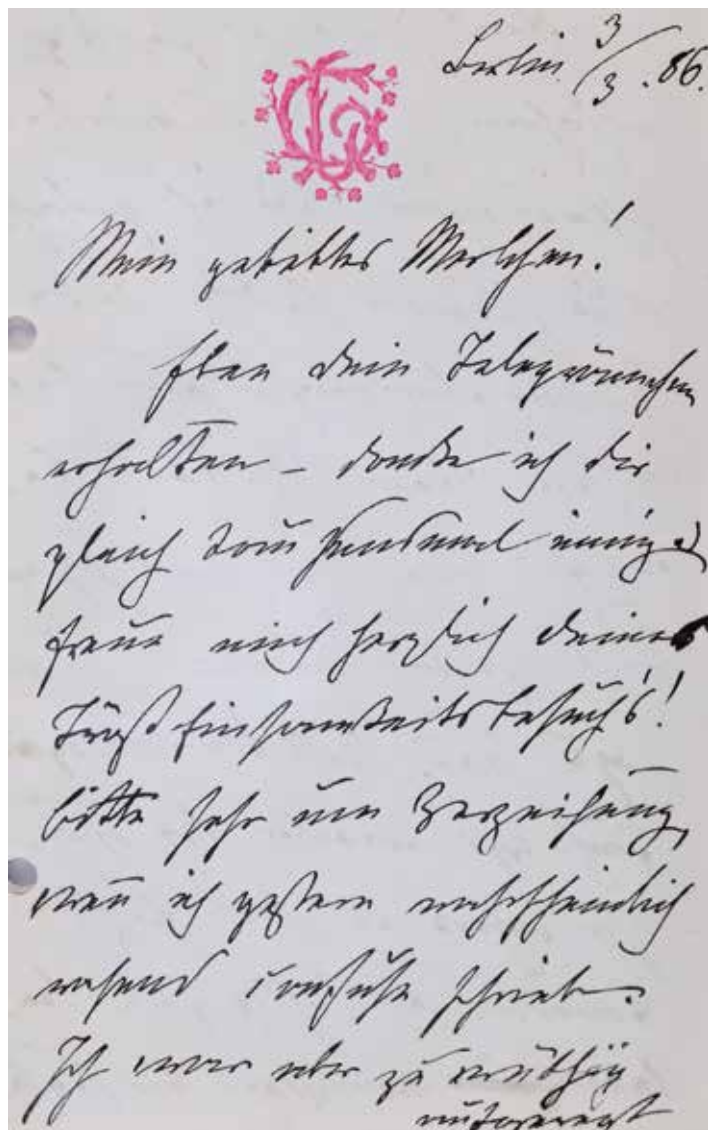 Berlin 3/3. 86.
Mein geliebtes
Eben dein Telegrämchen
erhalten – danke ich dir
gleich innig &
freue mich herzlich deines
Trost Einsamkeitsbesuch's!
bitte sehr um Verzeihung,
wen̄ ich gestern wahrscheinlich
rasend confuse schrieb.
Ich war aber zu
aufgeregt